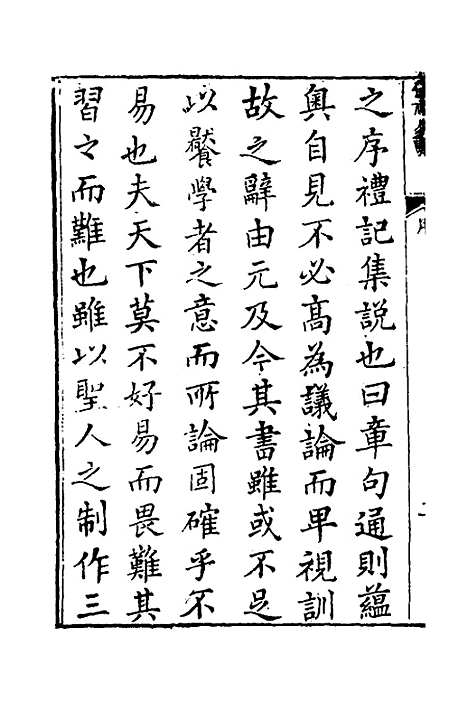 之序禮記集說也曰章句通則蘊
奧自見不必髙為議論而卑視訓
故之辭由元及今其書雖或不足
以饜學者之意而所論固確乎不
易也夫天下莫不好易而畏難其
習之而難也雖以聖人之制作三